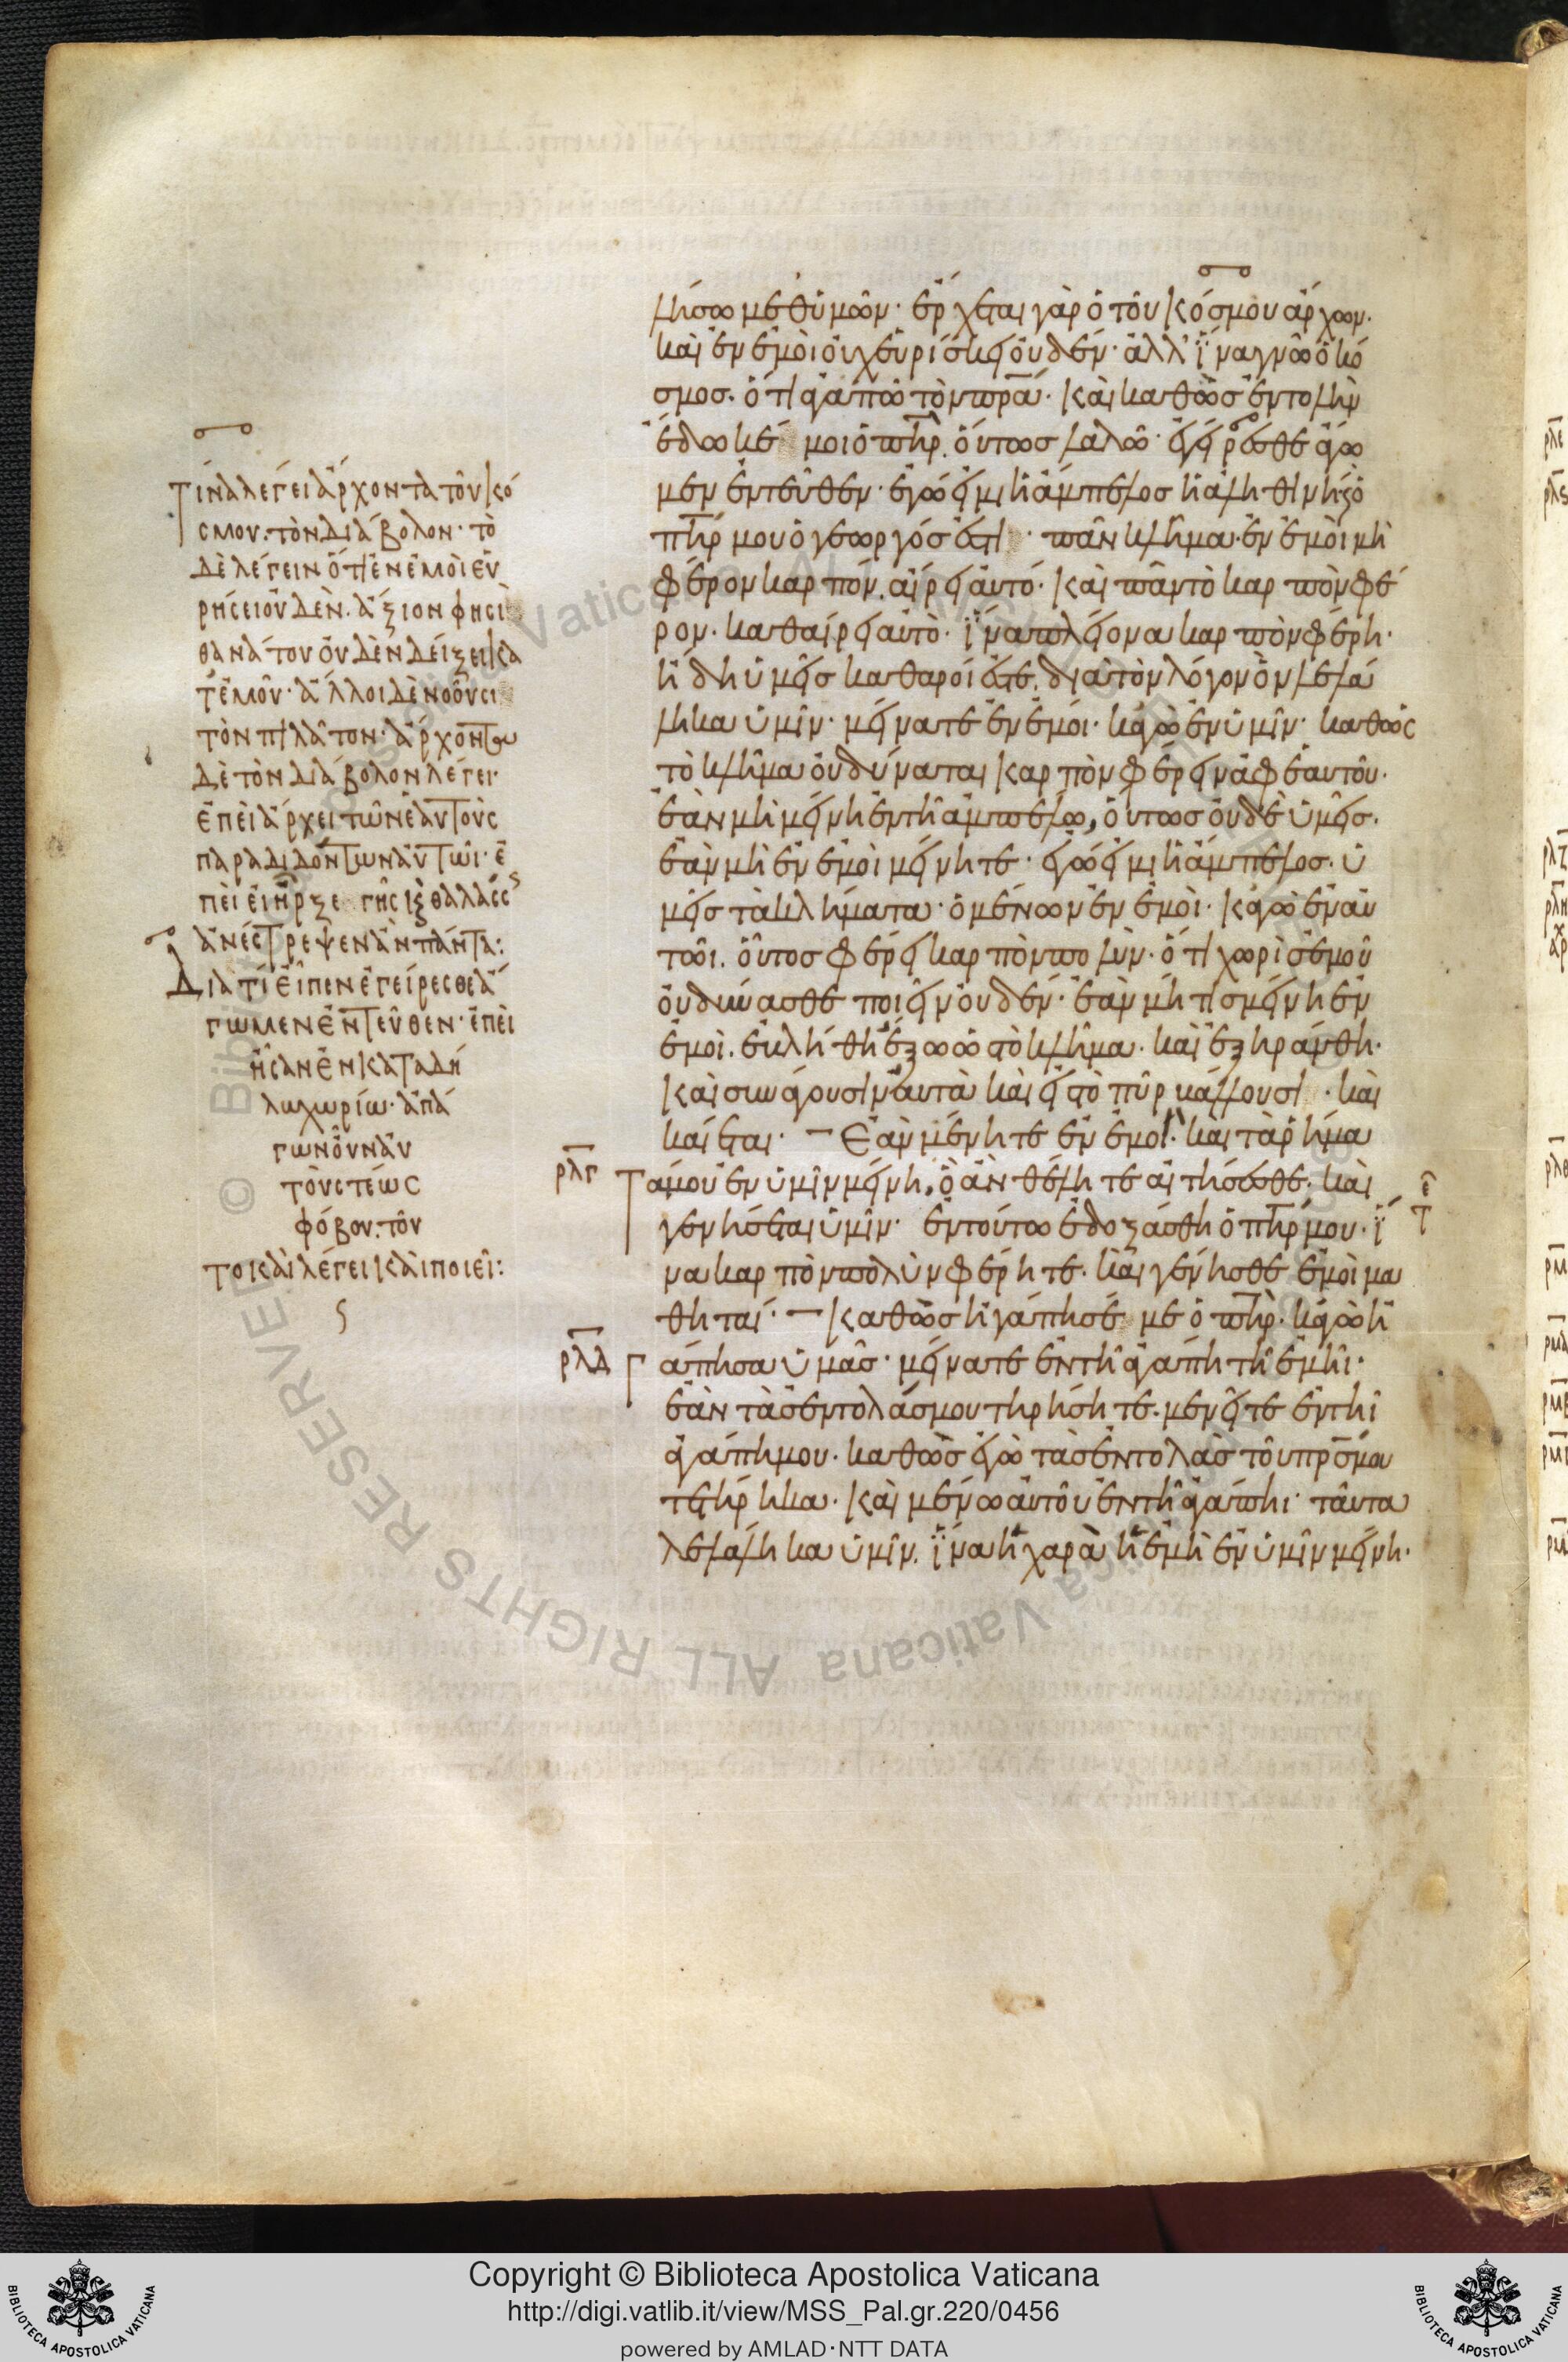 λήσω μεθ ὑμῶν· ἔρχεται γὰρ ὁ τοῦ κόσμου ἄρχων·
καὶ ἐν ἐμοὶ οὐχ εὑρίσκει οὐδέν· ἀλλ' ἵνα γνῶ ὁ κό
σμος· ὅτι ἀγαπῶ τὸν πρα· καὶ καθὼς ἐντολὴν
ἔδωκέ μοι ὁ πηρ. οὕτως λαλῶ· ἐγείρεσθε ἄγω
μεν ἐντεῦθεν· ἐγώ εἰμι ἡ ἄμπελος ἡ ἀληθινὴ ὁ
πηρ μου ὁ γεωργός ἐστι· πᾶν κλῆμα· ἐν ἐμοὶ μὴ
φέρον καρπόν. αἴρει αὐτό· καὶ πᾶν τὸ καρπὸν φέ
ρον· καθαίρει αὐτὸ· ἵνα πλείονα καρπὸν φέρη·
ἤδη ὑμεῖς καθαροί ἐστε. διὰ τὸν λόγον ὃν λελά
ληκα ὑμῖν· μείνατε ἐν ἐμοί· κἀγὼ ἐν ὑμῖν· καθὼς
τὸ κλῆμα οὐ δύναται καρπὸν φέρειν ἀφ ἑαυτοῦ·
ἐὰν μὴ μείνη ἐν τῆ ἀμπέλω, οὕτως οὐδὲ ὑμεῖς·
ἐὰν μὴ ἐν ἐμοὶ μείνητε· ἐγώ εἰμι ἡ ἄμπελος· ὑ
μεῖς τὰ κλήματα· ὁ μένων ἐν ἐμοὶ· κἀγὼ ἐν αὐ
τῶι. οὗτος φέρει καρπὸν πολύν· ὅτι χωρὶς ἐμοῦ
οὐ δύνασθε ποιεῖν οὐδέν· ἐὰν μή τις μείνη ἐν
ἐμοὶ. ἐκλήθη ἔξω ὡς τὸ κλῆμα· καὶ ἐξηράνθη·
καὶ συνάγουσιν αὐτὰ καὶ εἰς τὸ πῦρ βάλλουσι· καὶ
καίεται· Ἐὰν μένητε ἐν ἐμοὶ· καὶ τὰ ῥήμα
τά μου ἐν ὑμῖν μείνη, ὃ ἂν θέλητε αἰτήσασθε· καὶ
γενήσεται ὑμῖν· ἐν τούτω ἐδοξάσθη ὁ πηρ μου· ἵ
να καρπὸν πολὺν φέρητε· καὶ γένησθε ἐμοὶ μα
θηταί· καθὼς ἠγάπησέ με ὁ πηρ· κἀγὼ ἠ
γάπησα ὑμᾶς· μείνατε ἐν τῆ ἀγάπη τῆ ἐμῆι·
ἐὰν τὰς ἐντολάς μου τηρήσητε· μενεῖτε ἐν τῆ
ἀγάπη μου· καθὼς ἐγὼ τὰς ἐντολὰς τοῦ πρς μου
τετήρηκα· καὶ μένω αὐτοῦ ἐν τῆ ἀγάπηι· ταῦτα
λελάληκα ὑμῖν. ἵνα ἡ χαρὰ ἡ ἐμὴ ἐν ὑμῖν μείνη·
Τίνα λέγει ἄρχοντα τοῦ κό
σμου· τὸν διάβολον· τὸ
δὲ λέγειν ὅτι ἐν ἐμοὶ εὑ
ρήσει οὐδὲν· ἄξιόν φησι
θανάτου οὐδὲν δείξει κα
τ ἐμοῦ· ἄλλοι δὲ νοοῦσι
τὸν πιλᾶτον· ἄρχοντα
δὲ τὸν διάβολον λέγει·
ἐπεὶ ἄρχει τῶν ἑαυτοὺς
παραδιδόντων αὐτῶι· ἐ
πεὶ εἰ ἦρξε γῆς κ θαλάσσ
ἀνέστρεψεν ἂν πάντα:
Διατί εἶπεν ἐγείρεσθε ἄ
γωμεν ἐντεῦθεν· ἐπεὶ
ἦσαν ἐν καταδή
λω χωρίω· ἀπά
γων οὖν αὐ
τοὺς τέως
φόβου· τοῦ
το καὶ λέγει καὶ ποιεῖ:
ρλγ
ρλδ